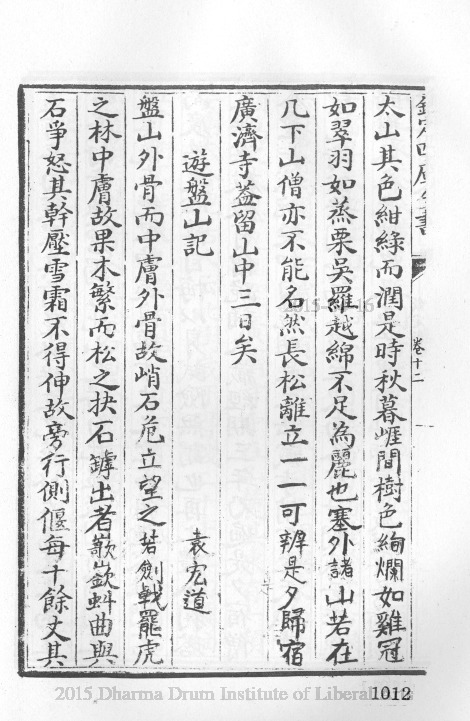 欽定四庫全書
卷十二
太山其色紺綠而潤是時秋暮崕間樹色絢爛如雞冠
如翠羽如蒸栗吳羅越綿不足為麗也塞外諸山若在
几下山僧亦不能名然長松離立一一可辨是夕歸宿
廣濟寺葢留山中三日矣
遊盤山記 袁宏道
盤山外骨而中膚外骨故峭石危立望之若劍戟羆虎
之林中膚故果木繁而松之抉石罅出者欹嶔蚪曲與
石爭怒其幹壓雪霜不得伸故旁行側偃每十餘丈其
2015 Dharma Drum Institute of Liberal
1012